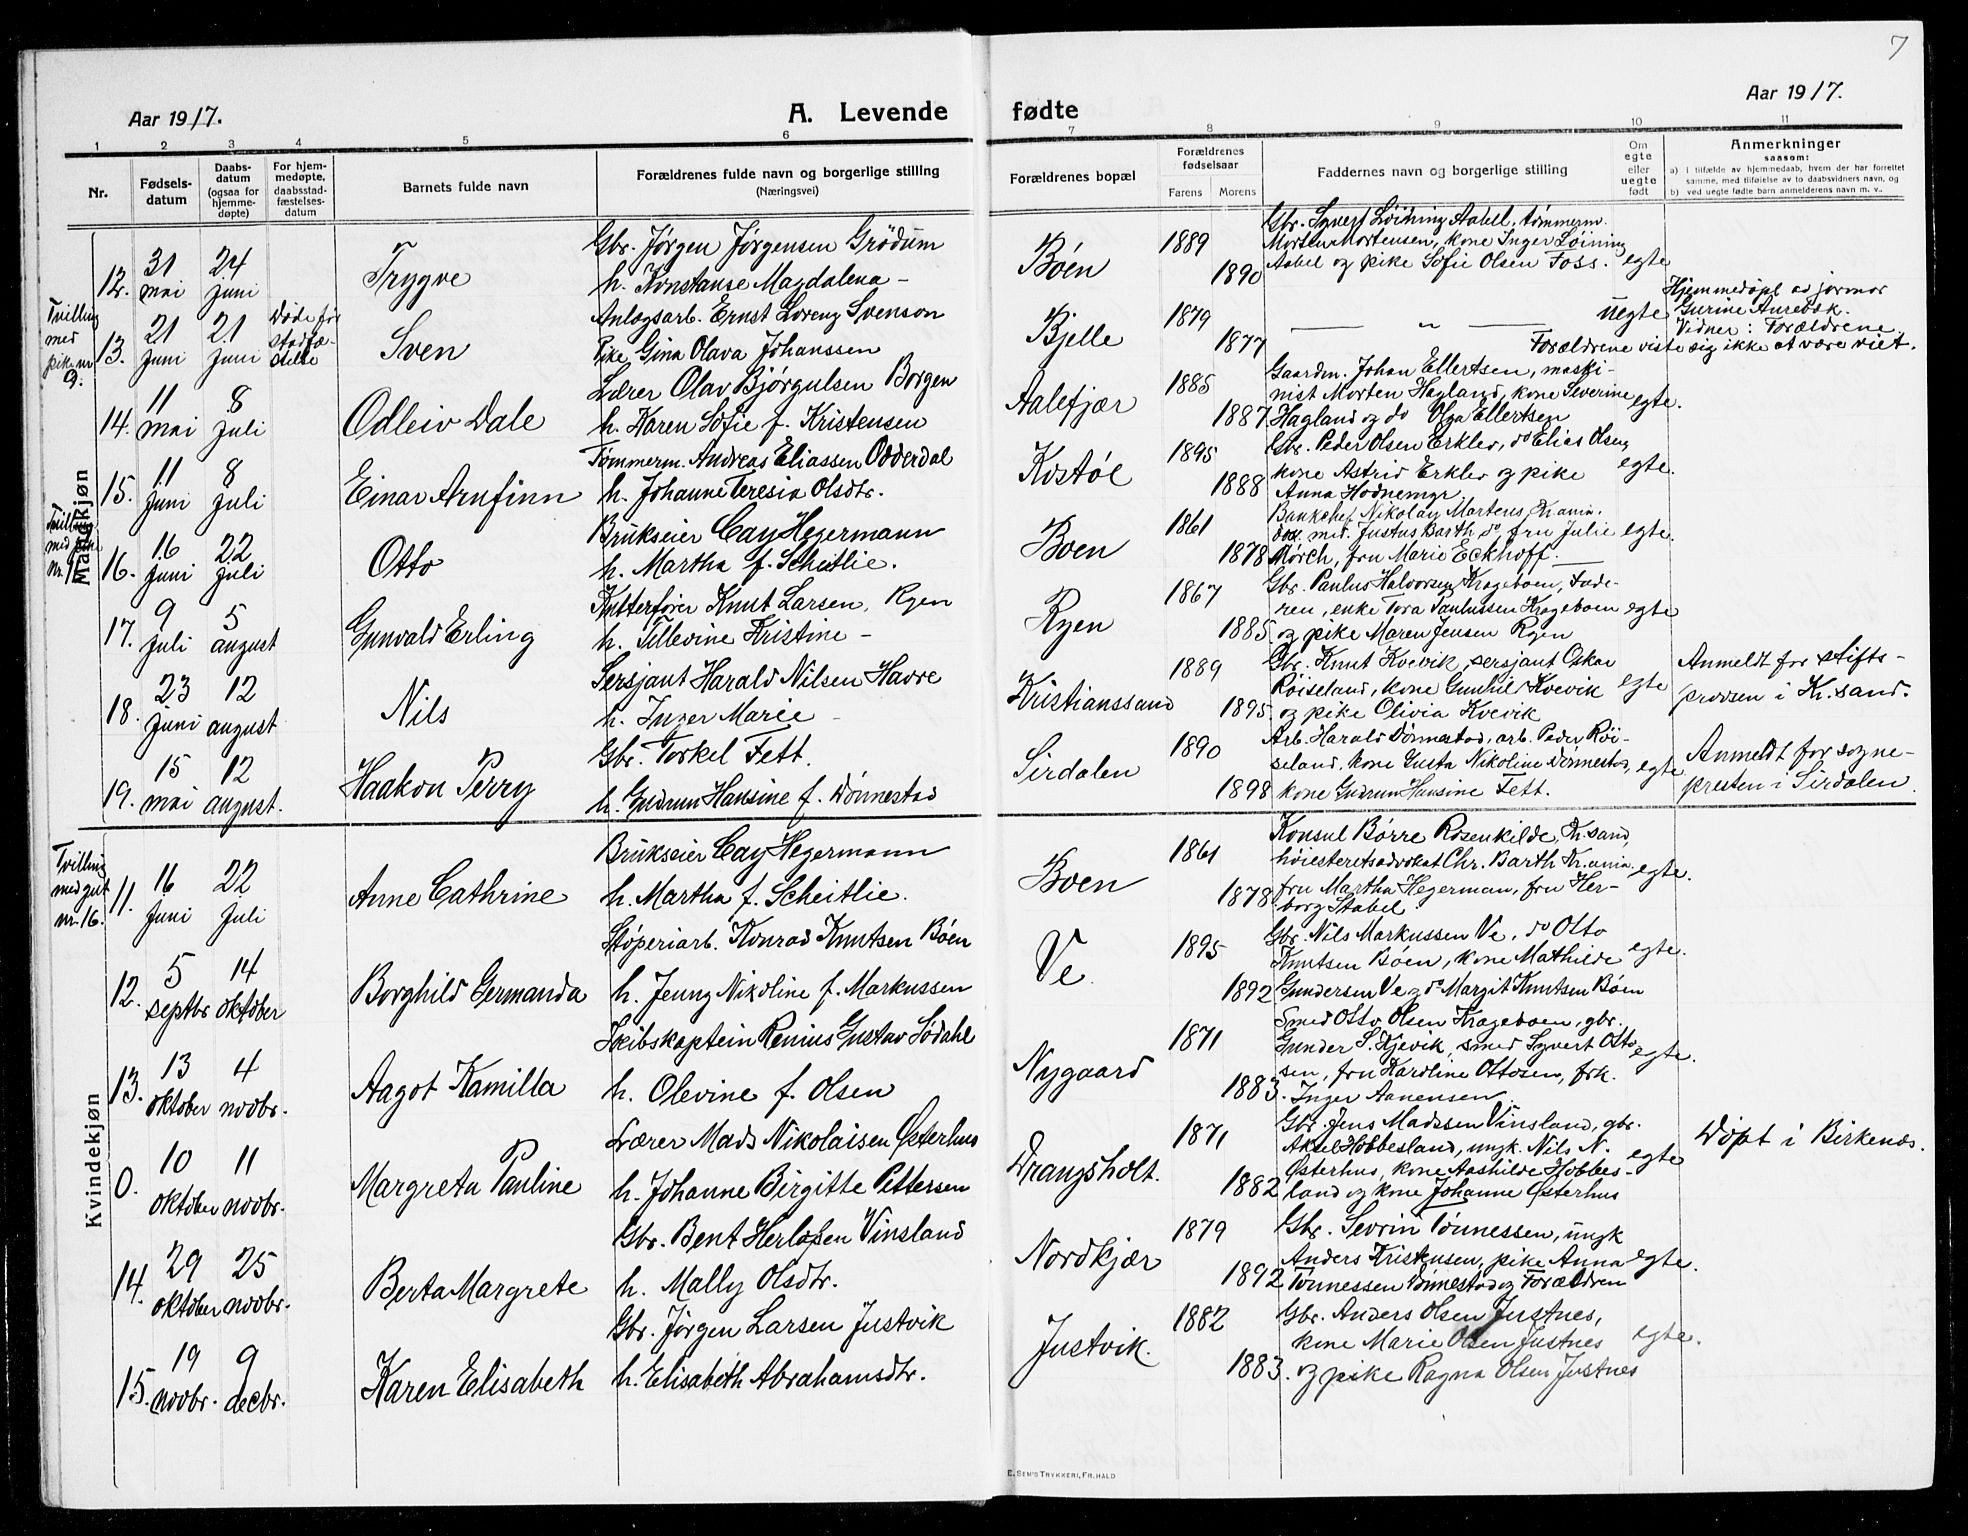 7
Aar 1917.
A. Levende fødte
Aar 1917.
1 2 3 4 5 6 7 8 9 10 11
Nr.
Fødsels-
datum
Daabs-
datum
(ogsaa for
hjemme-
døpte)
For hjem-
medøpte,
daabsstad-
fæstelses-
datum
Barnets fulde navn
Forældrenes fulde navn og borgerlige stilling
(Næringsvei)
Forældrenes bopæl
Forældrenes
fødselsaar
Farens Morens
Faddernes navn og borgerlige stilling
Om
egte
eller
uegte
født
Anmerkninger
saasom:
a) i tilfælde av hjemmedaab, hvem der har forrettet
samme, med tilføielse av to daabsvidners navn, og
b) ved uegte fødte barn anmelderens navn m. v.
Mandkjøn
12. 31 mai 24 juni Trygve
Gbr. Jørgen Jørgensen Grödum
h. Konstanse Magdalena –
Böen 1889 1890
Gbr. Syvert Löining Aabel, tømmerm.
Morten Mortensen, kone Inger Löining
Aabel og pike Sofie Olsen Foss. egte
Tvilling
med
pike nr
9.
13. 21 juni 21 juni Døde før
stadfæ-
stelse
Sven
Anlægsarb. Ernst Lorenz Svenson
Pike Gina Olava Johanssen
Bjelle 1879 1877
— „ — uegte
Hjemmedøpt ad jormor
Gurine Aurebæk.
Vidner: Forældrene.
Forældrene viste sig ikke at være viet.
14. 11 mai 8 juli Odleiv Dale
Lærer Olav Bjørgulsen Borgen
h. Karen Sofie f. Kristensen
Aalefjær 1885 1887
Gaardm. Johan Ellertsen, maski-
nist Morten Hagland, kone Severine
Hagland og do Olga Ellertsen egte.
15. 11 juni 8 juli Einar Arnfinn
Tømmerm. Andreas Eliassen Odderdal
h. Johanne Teresia Olsdtr.
Kostøl 1895 1888
Gbr. Peder Olsen Erklev, do Elies Olsen,
kone Astrid Erklev og pike
Anna Hodnemyr. egte.
Tvilling
med pike
Nr. 11
16. 16 juni 22 juli Otto
Brukseier Cay Hegermann
h. Martha f. Scheitlie.
Boen 1861 1878
Bankchef Nikolay Martens, Kr.ania.
dox. med. Justus Barth do, fru Julie
Mörch, fru Marie Eckhoff. egte.
17. 9 juli 5 august Gunvald Erling
Kutterfører Knut Larsen, Ryen
h. Tellevine Kristine –
Ryen 1867 1885
Gbr. Paulus Halvorsen Krageboen, Fade-
ren, enke Tora Paulussen Krageboen
og pike Maren Jensen Ryen egte
18. 23 juni 12 august Nils
Sersjant Harald Nilsen Havre
h. Inger Marie –
Kristianssand 1889 1895
Gbr. Knut Kvevik, sersjant Oskar
Röiseland, kone Gunhild Kvevik
og pike Olivia Kvevik egte
Anmeldt for stifts-
provsen i Kr.sand.
19. 15 mai 12 august. Haakon Perry
Gbr. Torkel Fett.
h. Gudrun Hansine f. Dönnestad
Sirdalen 1890 1898
Arb. Harald Dönnestad, arb. Peder Röi-
seland, kone Gusta Nikoline Dönnestad,
kone Gudrun Hansine Fett. egte
Anmeldt for sogne-
presten i Sirdalen.
Kvindekjøn
Tvilling
med gut
nr. 16.
11. 16 juni 22 juli Anne Cathrine
Brukseier Cay Hegermann
h. Martha f. Scheitlie.
Boen 1861 1878
Konsul Börre Rosenkilde, Kr.sand,
höiesteretsadvokat Chr. Barth Kr.ania.
fru Martha Hegerman, fru Her-
borg Stabel. egte.
12. 5 septbr 14 oktober Borghild Germanda
Støperiarb. Konrad Knutsen Böen
h. Jenny Nikoline f. Markussen
Ve. 1895 1892
Gbr. Nils Markussen Ve, do Otto
Knutsen Böen, kone Mathilde
Gundersen Ve og do Margit Knutsen Böen egte.
13. 13 oktober 4 novbr. Aagot Kamilla
Skibskaptein Renius Gustav Södahl
h. Olevine f. Olsen
Nygaard 1871 1883.
Smed Otto Olsen Krageboen, gbr.
Gunder S. Kjevik, smed Syvert Otto-
sen, fru Karoline Ottosen, frk.
Inger Aanensen egte.
0. 10 oktober 11 novbr. Margreta Pauline
Lærer Mads Nikolaisen Østerhus
h. Johanne Birgitte Pettersen
Drangsholt. 1871 1882
Gbr. Jens Madssen Vinsland, gbr.
Aksel Hobbesland, ungk. Nils N.
Østerhus, kone Aashilde Hobbes-
land og kone Johanne Østerhus egte
Døpt i Birkenæs.
14. 29 oktober 25 novbr. Berta Margrete
Gbr. Bent Herlofsen Vinsland
h. Mally Olsdtr.
Nordkjær 1879 1892
Gbr. Sevrin Tönnessen, ungk
Anders Kristensen, pike Anna
Tönnessen Dönnestad og Forældren egte.
15. 19 novbr. 9 decbr. Karen Elisabeth
Gbr. Jørgen Larsen Justvik
h. Elisabeth Abrahamsdtr.
Justvik. 1882 1883.
Gbr. Anders Olsen Justnes,
kone Marie Olsen Justnes
og pike Ragna Olsen Justnes egte.
E. SEM'S TRYKKERI, FR.HALD